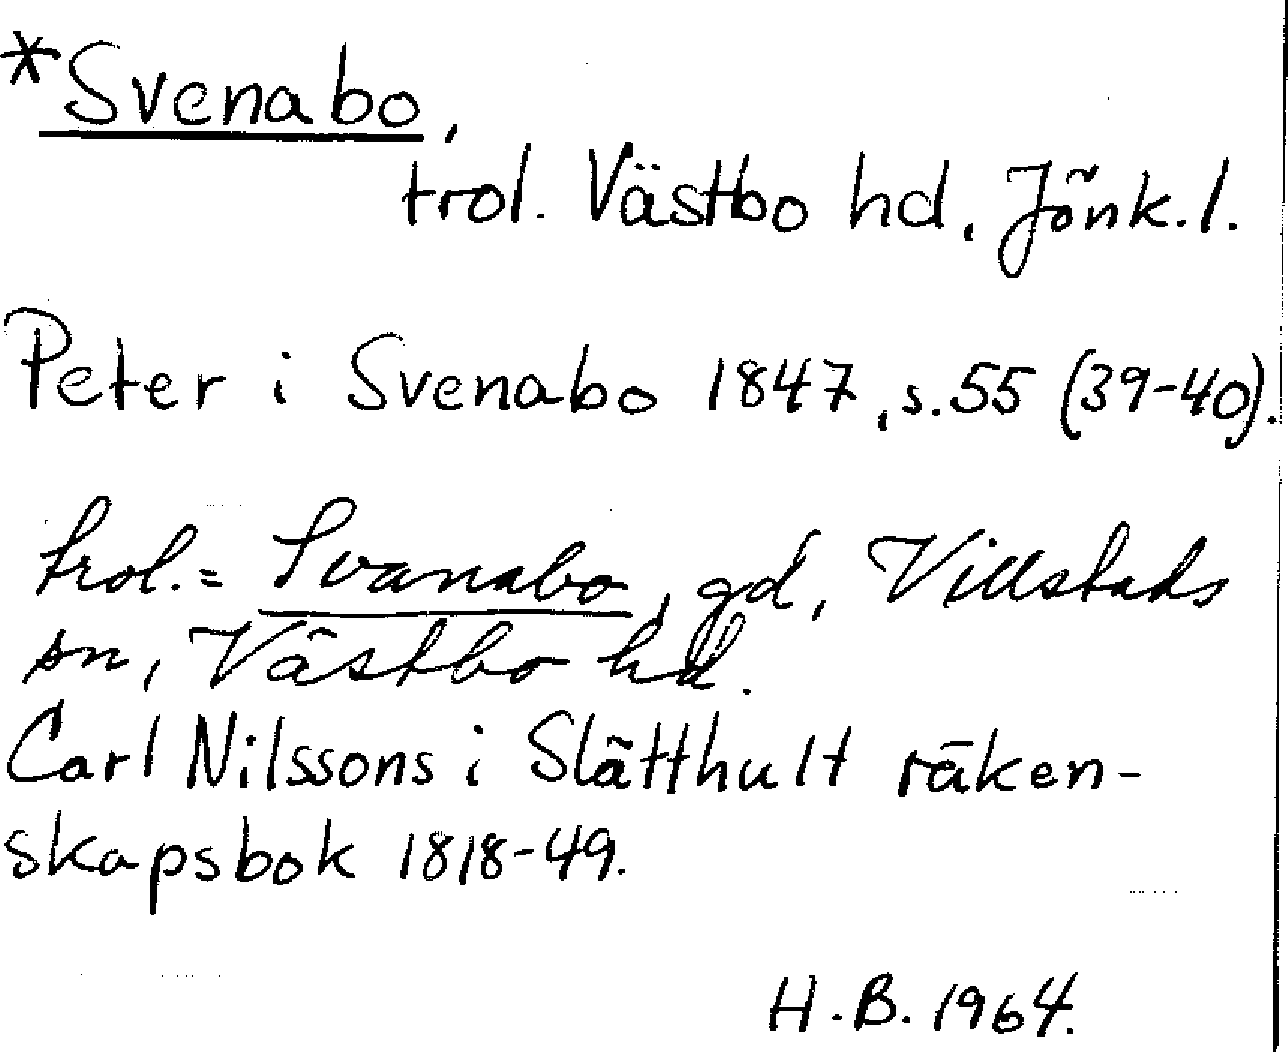 *Svenabo,
trol. Västbo hd, Jönk. l.
Peter i Svenabo 1847, s. 55 (39-40).
trol. = Svanabo, gd, Villstads
sn, Västbo hd.
Carl Nilssons i Slätthult räken-
skapsbok 1818-49.
H.B. 1964.